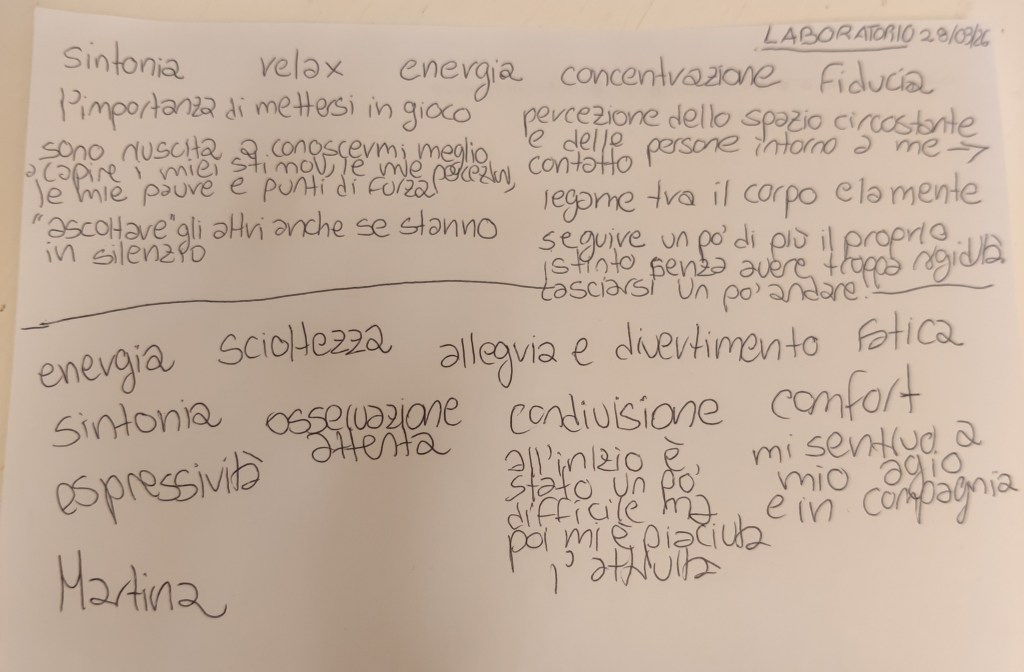 LABORATORIO 28/03/26
sintonia relax energia concentrazione fiducia
l'importanza di mettersi in gioco
sono riuscita a conoscermi meglio
a capire i miei stimoli, le mie percezioni,
le mie paure e punti di forza
"ascoltare" gli altri anche se stanno
in silenzio
percezione dello spazio circostante
e delle persone intorno a me →
contatto
legame tra il corpo e la mente
seguire un po' di più il proprio
istinto senza avere troppa rigidità
lasciarsi un po' andare.
energia scioltezza allegria e divertimento fatica
sintonia osservazione condivisione comfort
attenta
espressività
all'inizio è
stato un po'
difficile ma
poi mi è piaciuta
l'attività
mi sentivo a
mio agio
e in compagnia
Martina